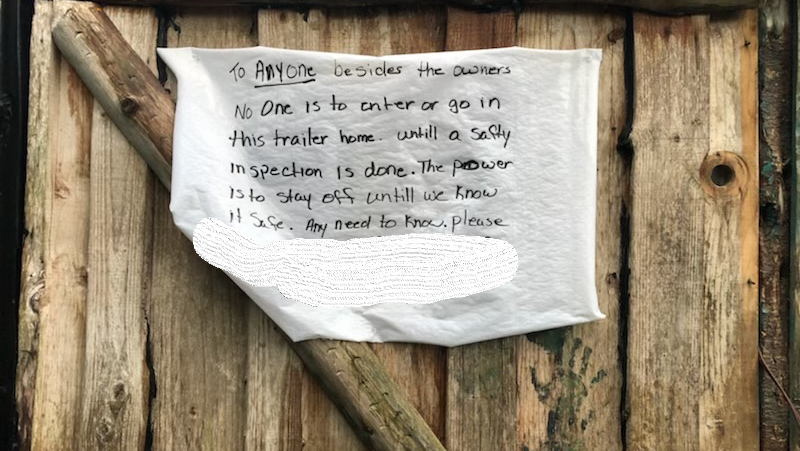 To ANYONE besides the owners
No One is to enter or go in
this trailer home. untill a Safty
Inspection is done. The power
is to stay off untill we know
it Safe. Any need to know. please